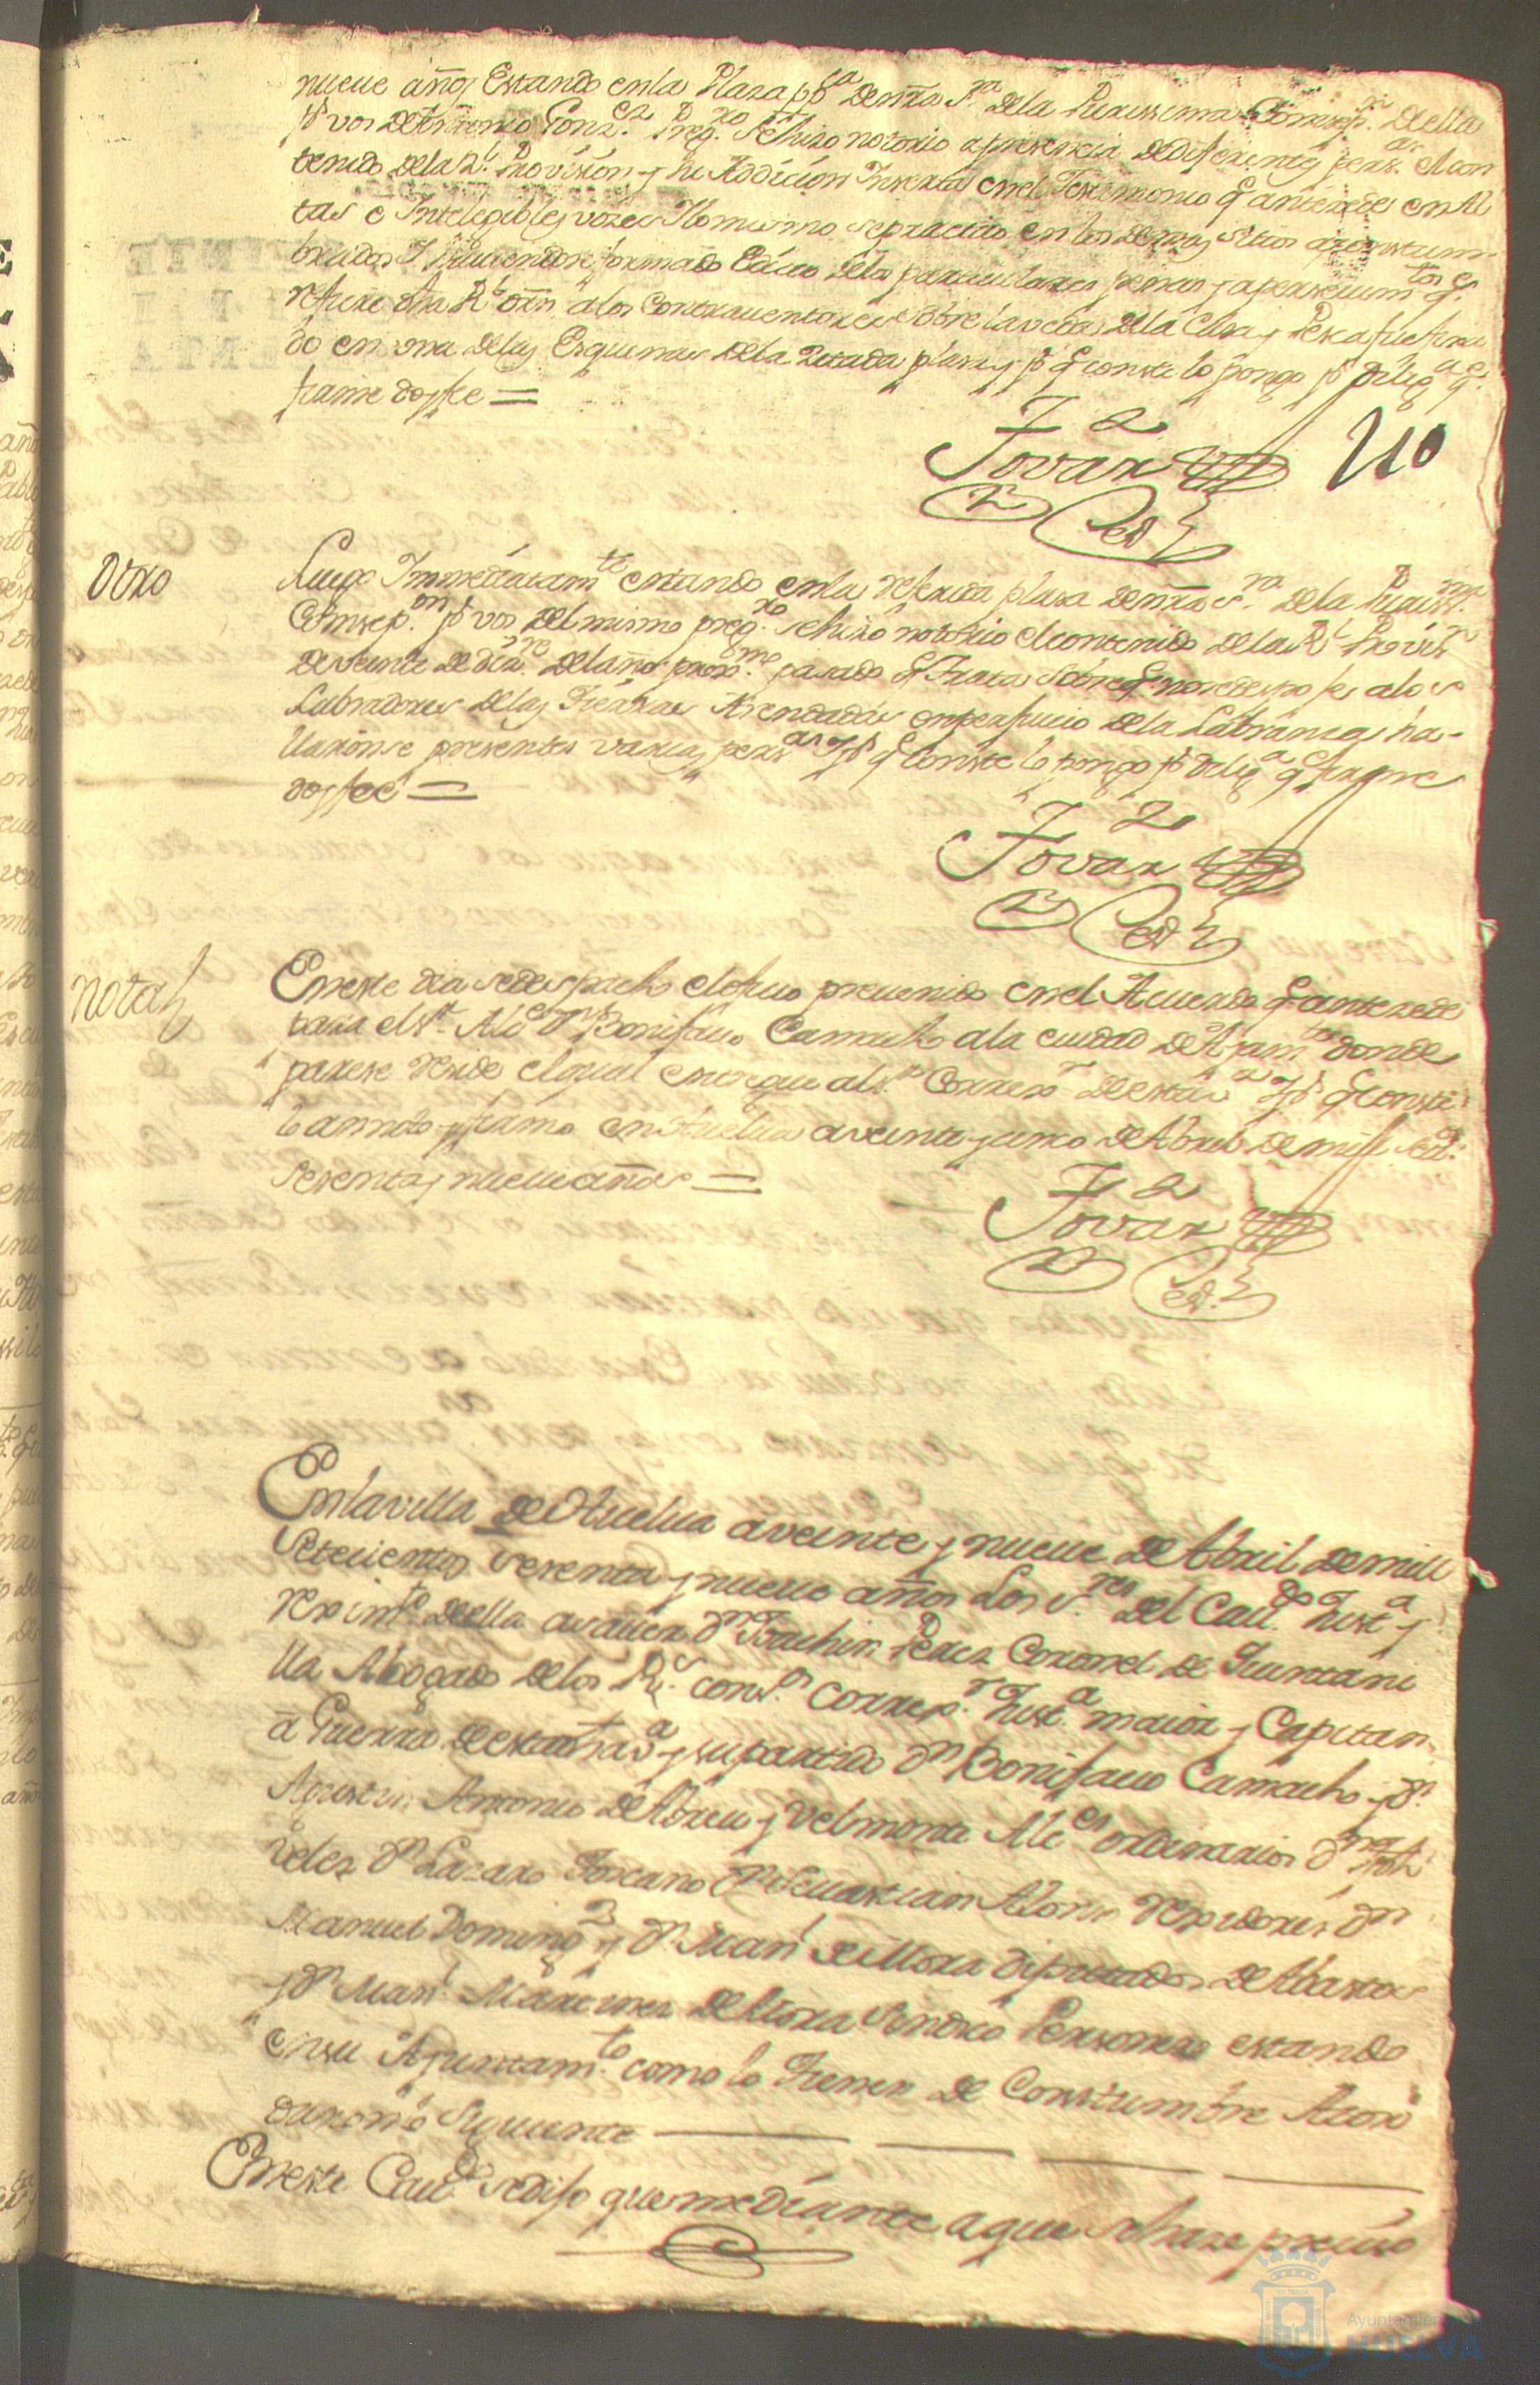 nueue años Estando enla Plaza pp.ca denrâ S.ra dela Purissima Consep.on Della
p.r vos de Antonio Gonz.ez Preg.ro se hizo notorio apresencia dediferentes pers.as el con
tenido dela R.l Provision y su Addicion Inserta enel Testimonio q.e antesede en Al
tas e Inteligibles vozes Ylomismo sepractico enlos demas sitios acostum-
brados Y haviendose formado Edicto delas particulares penas y apersevim.tos q.e
refiere dha R.l orn. alos Contraventores sobre laveda dela Casa y Pesca sefixa
do en una delas Esquinas dela zitada plaza y p.a q.e conste lo pongo p.r dilig.a q.e
firmé doy fee =
Tovar
Ess.no
210
Otro
Luego Immediatam.te estando enla referida plaza denrâ S.ra dela Puriss.ma
Consep.on p.r vos delmismo preg.ro se hizo notorio elcontenido dela R.l Provis.n
deveinte de diz.re delaño prox.mo pasado q.e trata sobre q.e nosedespojes alos
Labradores delas Tierras Arendadas enperjuicio dela Labransa y ha-
llaronse presentes varias pers.as Y p.a q.e Conste lo pongo p.r dilig.a q.e firme
doy fee =
Tovar
Ess.no
Nota
Eneste dia sedespacho elofisio prevenido enel Acuerdo q.e antesede
para el S.r Alc.e D.n Bonifacio Camacho ala ciudad de Ayam.te donde
parese reside elqual entregue al S.r Correx.r deesta v.a Y p.a q.e Conste
lo annoto y firmo en Huelua aveinte y sinco de Abril de mill set.s
sesenta y nueue años =
Tovar
Ess.no
Enlavilla de Huelua aveinte y nueue de Abril demill
Setecientos sesenta y nueue años Los S.res del Cau.do Just.a y
reximt.o deella asauer D.n Joachin Perez Coronel de Quintani
lla Abogado delos R.s cons.os Correx.r Just.a maior y Capitan
a Guerra deesta dha v.a y supartido D.n Bonifacio Camacho y D.n
Agustin Antonio de Abreu y Velmonte Alc.es ordinarios D.n
Velez D.n Lazaro Toscano D.n Seuastian Alonso rexidores D.n
Manuel Doming.z y D.n Man.l de Mora diputados de Abastos
y D.n Man.l Martinez de Mora Sindico Personero estando
ensu Ayuntam.to como lo tienen de Constumbre Acor
daron lo siguiente
Eneste Cau.do sedijo quemediante aque sehaze presiso
Ayuntamiento
HUELVA